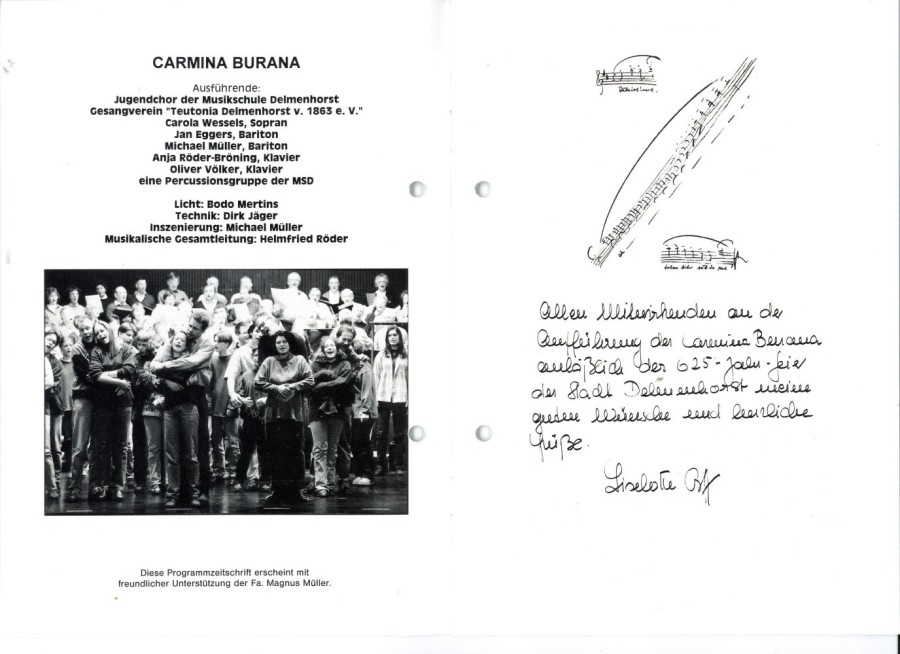 CARMINA BURANA
Ausführende:
Jugendchor der Musikschule Delmenhorst
Gesangverein "Teutonia Delmenhorst v. 1863 e. V."
Carola Wessels, Sopran
Jan Eggers, Bariton
Michael Müller, Bariton
Anja Röder-Bröning, Klavier
Oliver Völker, Klavier
eine Percussionsgruppe der MSD
Licht: Bodo Mertins
Technik: Dirk Jäger
Inszenierung: Michael Müller
Musikalische Gesamtleitung: Helmfried Röder
Diese Programmzeitschrift erscheint mit
freundlicher Unterstützung der Fa. Magnus Müller.
Allen Mitwirkenden an der
Aufführung der Carmina Burana
anläßlich der 625-Jahr-feier
der Stadt Delmenhorst meine
guten Wünsche und herzliche
Grüße.
Liselotte Orff